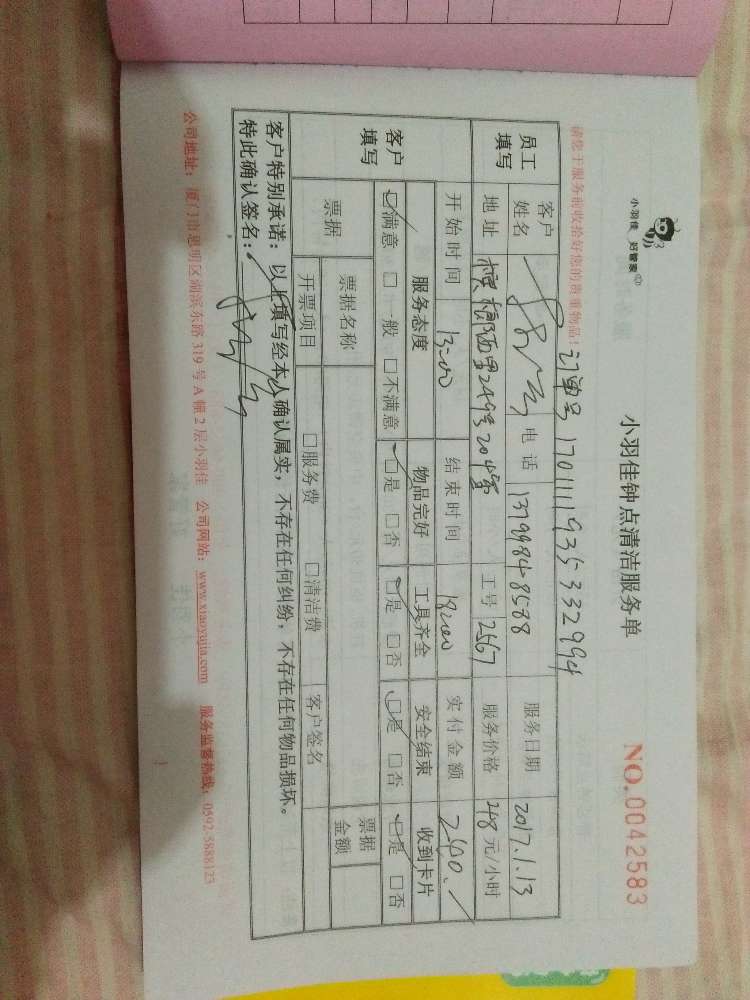 小羽佳 好管家
小羽佳钟点清洁服务单
NO.0042583
请您于服务前收拾好您的贵重物品!
订单号 1701111935332994
员工填写 客户姓名 电话 13799848588 服务日期 2017.1.13
地址 槟榔西里249号204室 工号 2567 服务价格 48元/小时
开始时间 13:00 结束时间 18:00 实付金额 240.
客户填写 服务态度 物品完好 工具齐全 安全结束 收到卡片
☑满意 □一般 □不满意 ☑是 □否 ☑是 □否 ☑是 □否 ☑是 □否
票据 票据名称 票据金额
开票项目 □服务费 □清洁费 客户签名
客户特别承诺:以上填写经本人确认属实,不存在任何纠纷,不存在任何物品损坏。
特此确认签名:
公司地址:厦门市思明区湖滨东路319号A幢2层小羽佳 公司网站:www.xiaoyujia.com 服务监督热线:0592-5888123